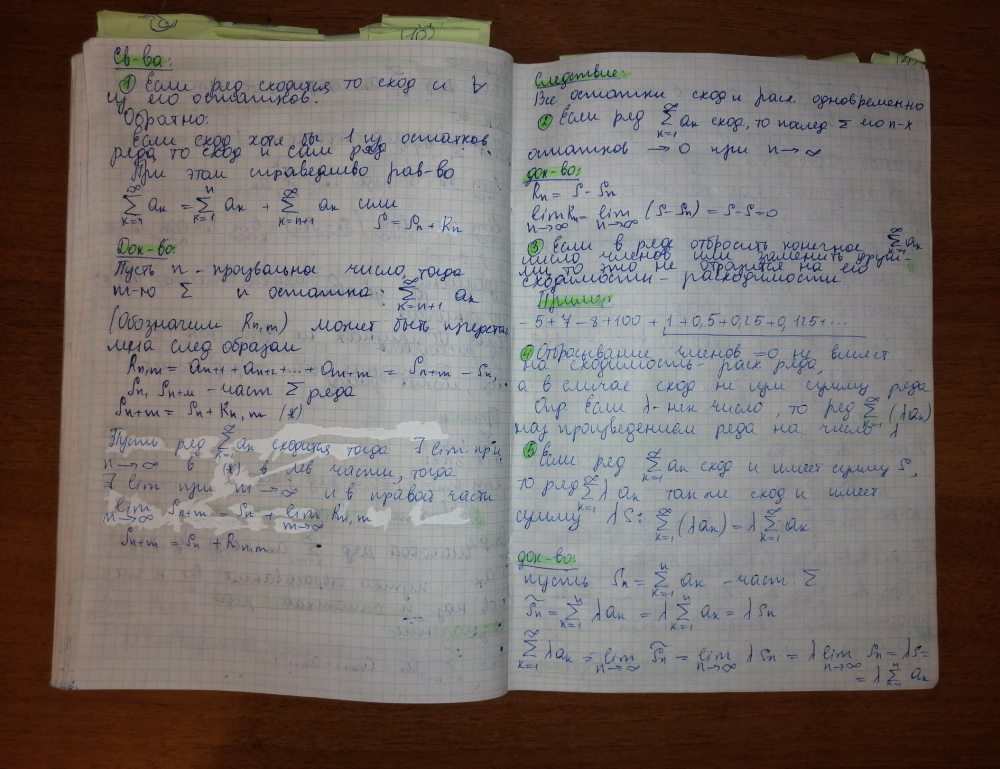 Св-ва:
① Если ряд сходится то сход и ∀
из его остатков.
Обратно:
Если сход хотя бы 1 из остатков
ряда то сход и сам ряд
При этом справедливо рав-во
∑_{k=1}^{∞} aₖ = ∑_{k=1}^{n} aₖ + ∑_{k=n+1}^{∞} aₖ или
S = Sₙ + Rₙ
Док-во:
Пусть n - произвальное число, тогда
m-ю ∑ n остатка ∑_{k=n+1}^{∞} aₖ
(Обозначим Rₙ,ₘ) может быть предста
лена след образом
Rₙ,ₘ = aₙ₊₁ + aₙ₊₂ + ... + aₙ₊ₘ = Sₙ₊ₘ - Sₙ,
Sₙ, Sₙ₊ₘ - част ∑ ряда
Sₙ₊ₘ = Sₙ + Rₙ,ₘ (*)
Пусть ряд ∑_{k=1}^{∞} aₖ сходится тогда ∃ lim при
n→∞ в (*) в лев части, тогда
∃ lim при m→∞ и в правой части
lim_{m→∞} Sₙ₊ₘ = Sₙ + lim_{m→∞} Rₙ,ₘ
Sₙ₊ₘ = Sₙ +
Следствие:
Все остатки сход и расх. одновременно
② Если ряд ∑_{k=1}^{∞} aₖ сход, то послед ∑ его n-х
остатков → 0 при n→∞
док-во:
Rₙ = S - Sₙ
lim_{n→∞} Rₙ = lim_{n→∞} (S - Sₙ) = S - S = 0
③ Если в ряд отбросить конечное ∑_{k=1}^{∞} aₖ
число членов или заменить други-
ми то это не отразится на его
сходимости - расходимости
Пример
- 5 + 7 - 8 + 100 + 1 + 0,5 + 0,25 + 0,125 + ...
④ Отбрасывание членов =0 не влияет
на сходимость - расх ряда,
а в случае сход не
сумму ряда
Опр Если λ - нек число, то ряд ∑_{k=1}^{∞} (λaₖ)
наз произведением ряда на число λ
⑤ Если ряд ∑_{k=1}^{∞} aₖ сход и имеет сумму S,
то ряд ∑_{k=1}^{∞} λaₖ также сход и имеет
сумму λS: ∑_{k=1}^{∞} (λaₖ) = λ ∑_{k=1}^{∞} aₖ
док-во:
пусть Sₙ = ∑_{k=1}^{n} aₖ - част. ∑
S̃ₙ = ∑_{k=1}^{n} λaₖ = λ ∑_{k=1}^{n} aₖ = λSₙ
∑_{k=1}^{∞} λaₖ = lim_{n→∞} S̃ₙ = lim_{n→∞} λSₙ = λ lim_{n→∞} Sₙ = λS =
= λ ∑_{k=1}^{n} aₖ